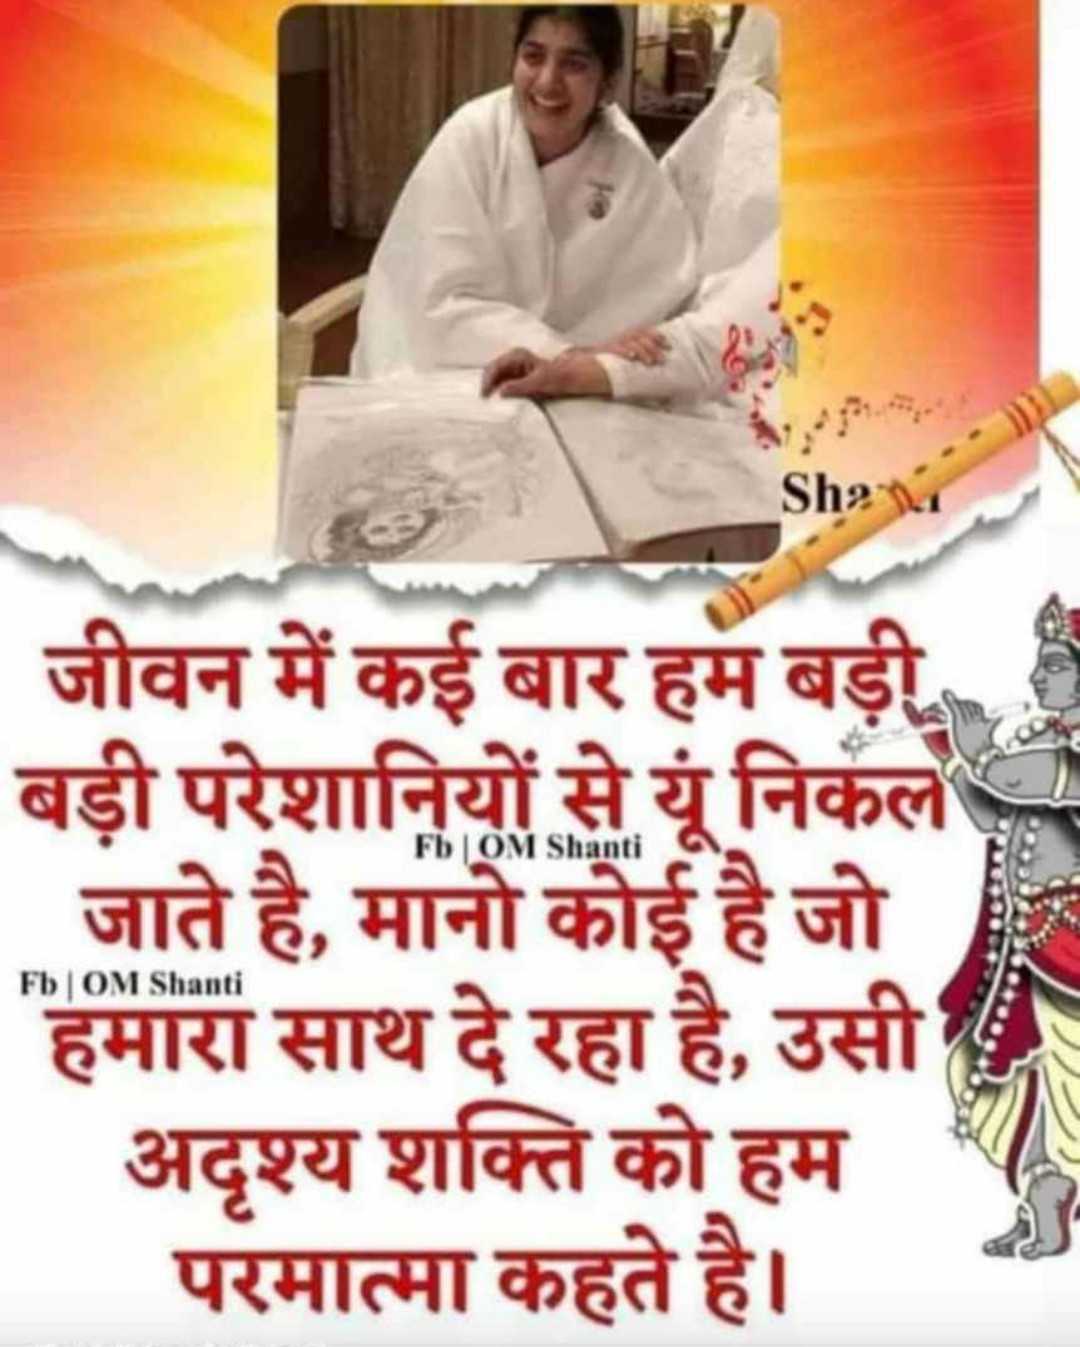 जीवन में कई बार हम बड़ी
बड़ी परेशानियों से यूं निकल
Fb | OM Shanti
जाते है, मानो कोई है जो
Fb | OM Shanti
हमारा साथ दे रहा है, उसी
अदृश्य शक्ति को हम
परमात्मा कहते है।